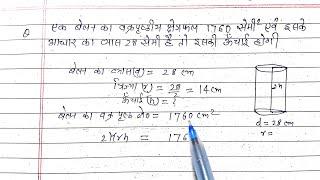 Q एक बेलन का वक्रपृष्ठीय क्षेत्रफल 1760 सेमी² एवं इसके
आधार का व्यास 28 सेमी है तो इसकी ऊँचाई होगी
बेलन का व्यास(d) = 28 cm
त्रिज्या(r) = 28/2 = 14 cm
ऊँचाई(h) = ?
बेलन का वक्र पृष्ठ क्षे० = 1760 cm²
2πrh = 176
d = 28cm
r =